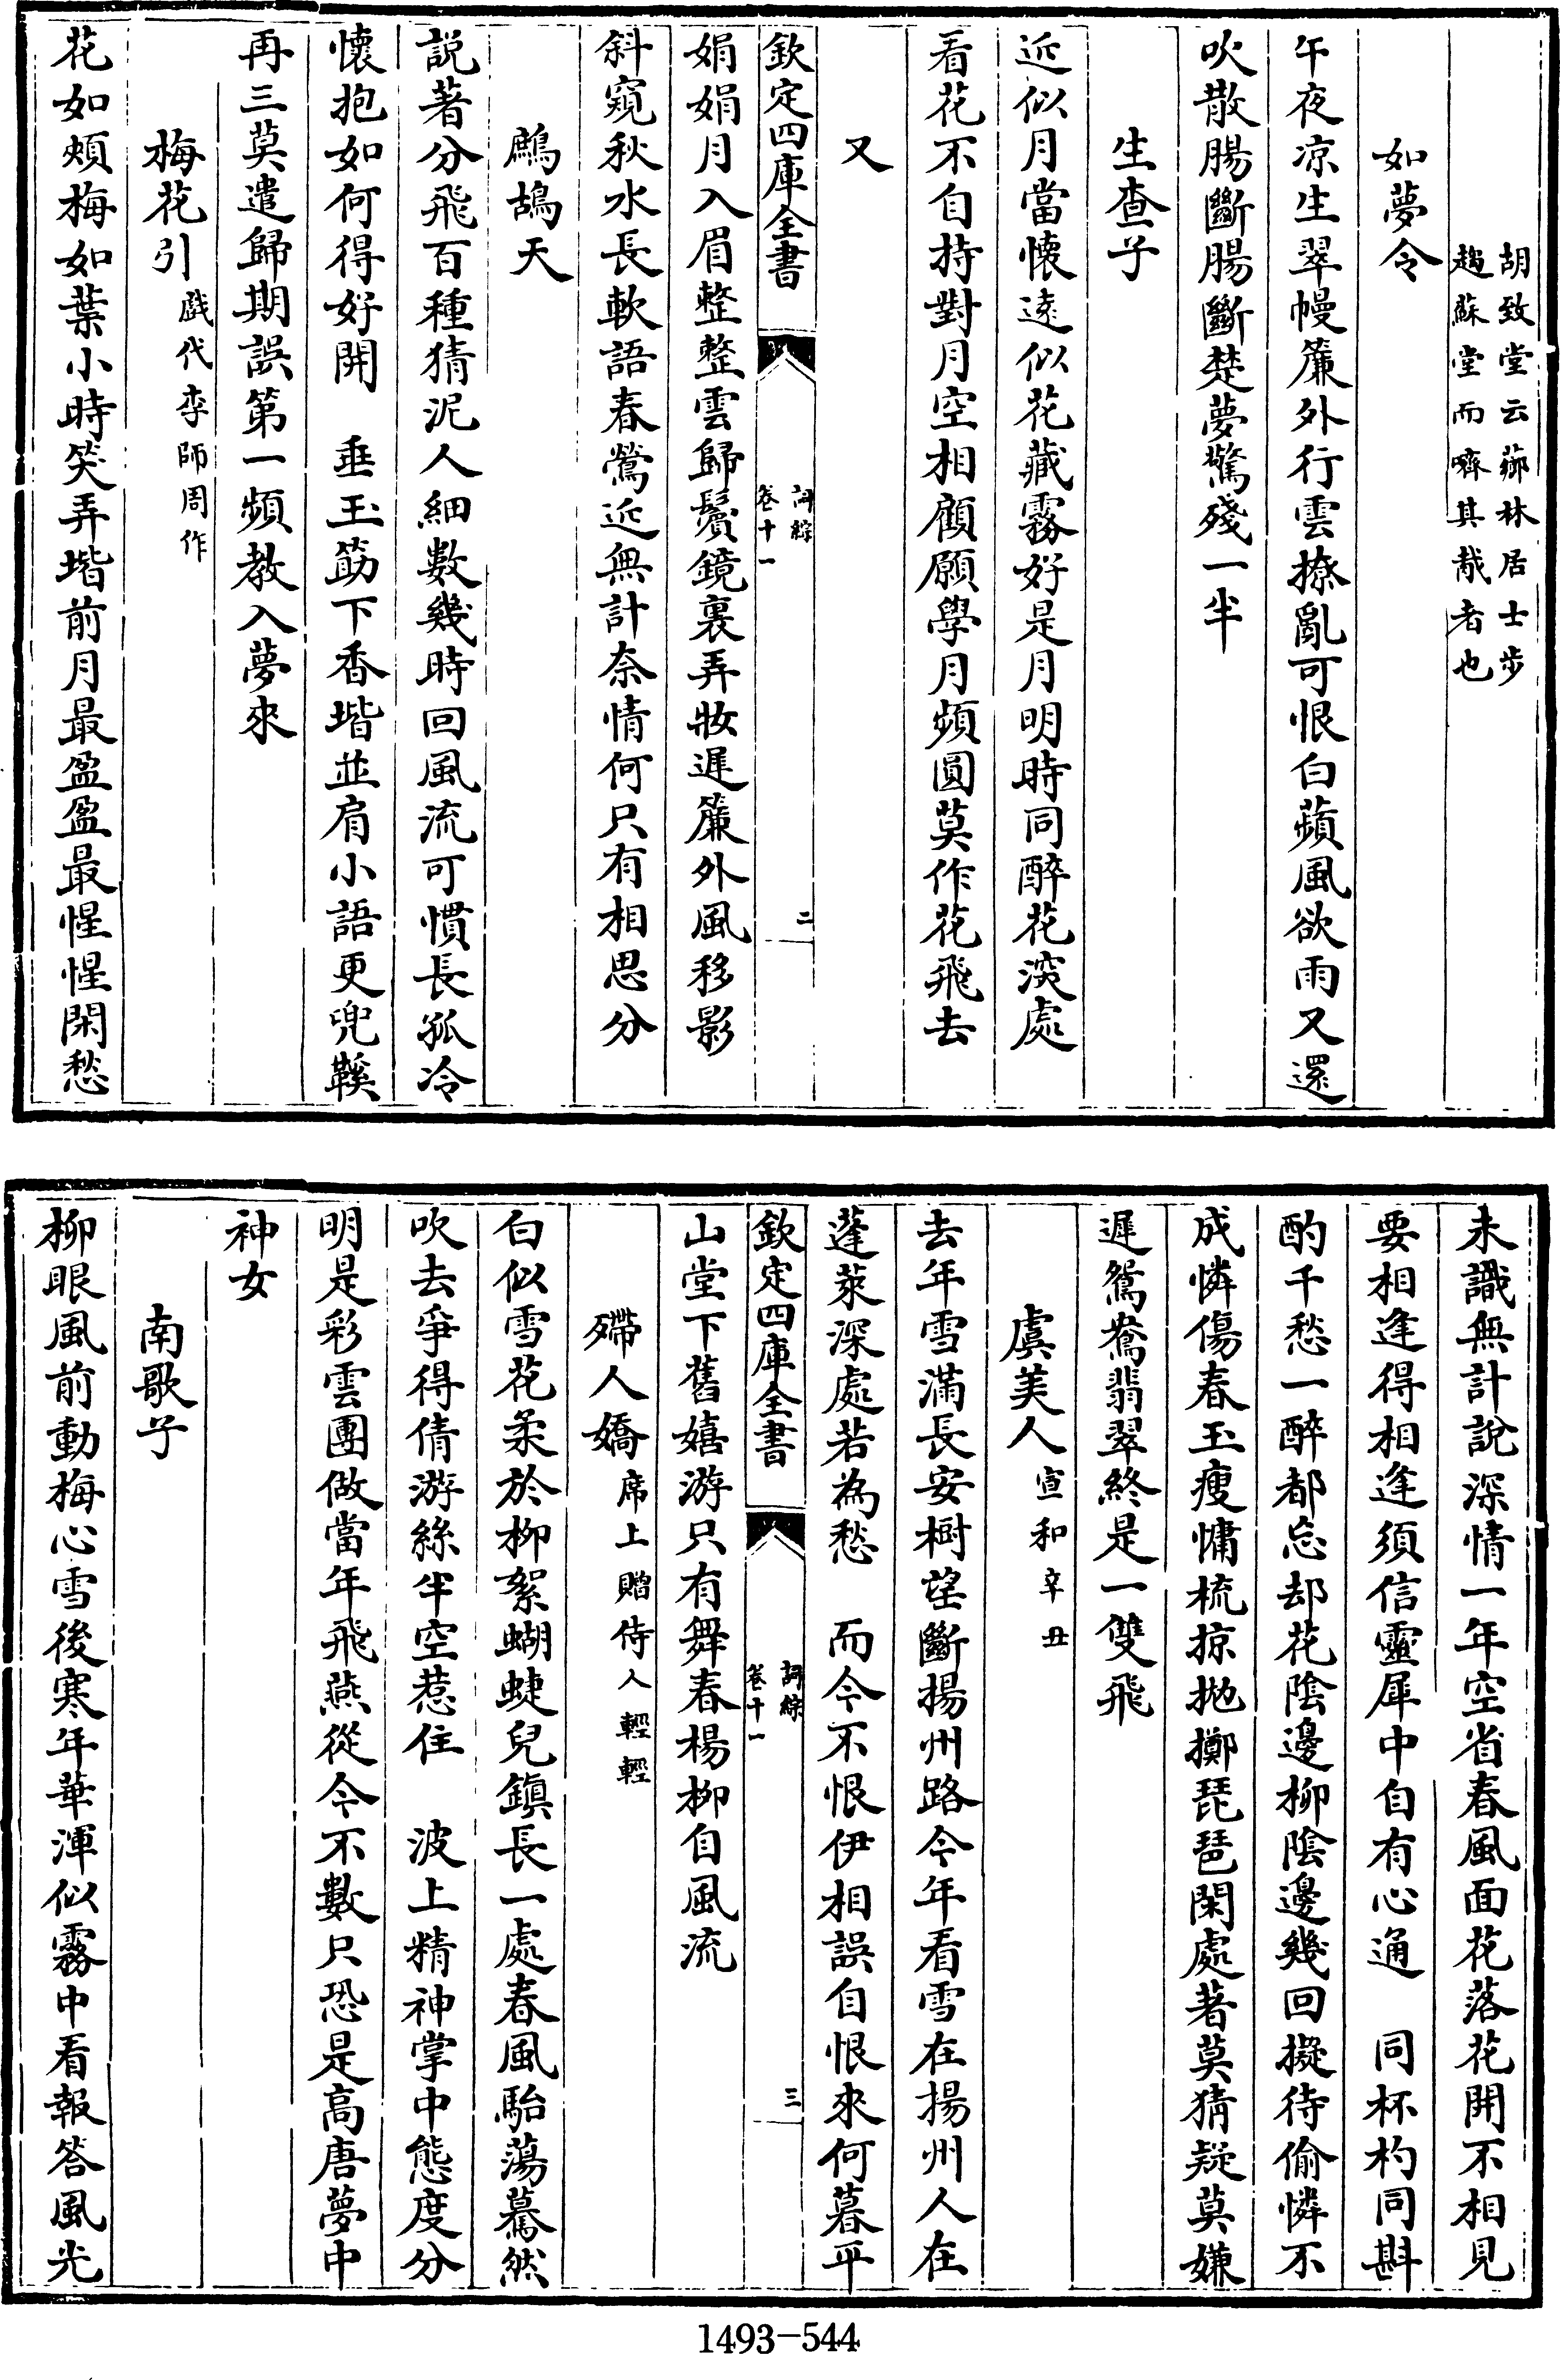 胡致堂云薌林居士步
趨蘇堂而嚌其胾者也
如夢令
午夜凉生翠幔簾外行雲撩亂可恨白蘋風欲雨又還
吹散腸斷腸斷楚夢驚殘一半
生查子
近似月當懷遠似花藏霧好是月明時同醉花深處
看花不自持對月空相顧願學月頻圓莫作花飛去
又
欽定四庫全書
詞綜
卷十一
二
娟娟月入眉整整雲歸鬢鏡裏弄妝遲簾外風移影
斜窺秋水長軟語春鶯近無計奈情何只有相思分
鷓鴣天
説著分飛百種猜泥人細數幾時回風流可慣長孤冷
懷抱如何得好開　垂玉筯下香堦並肩小語更兜鞵
再三莫遣歸期誤第一頻教入夢來
梅花引戯代李師周作
花如頰梅如葉小時笑弄堦前月最盈盈最惺惺閑愁
未識無計説深情一年空省春風面花落花開不相見
要相逢得相逢須信靈犀中自有心通　同杯杓同斟
酌千愁一醉都忘却花陰邊柳陰邊幾回擬待偷憐不
成憐傷春玉瘦慵梳掠抛擲琵琶閑處著莫猜疑莫嫌
遲鴛鴦翡翠終是一雙飛
虞美人宣和辛丑
去年雪滿長安樹望斷揚州路今年看雪在揚州人在
蓬萊深處若為愁　而今不恨伊相誤自恨來何暮平
欽定四庫全書
詞綜
卷十一
三
山堂下舊嬉游只有舞春楊柳自風流
殢人嬌席上贈侍人輕輕
白似雪花柔於柳絮蝴蜨兒鎮長一處春風駘蕩驀然
吹去爭得倩游絲半空惹住　波上精神掌中態度分
明是彩雲團做當年飛燕從今不數只恐是高唐夢中
神女
南歌子
柳眼風前動梅心雪後寒年華渾似霧中看報答風光
1493-544